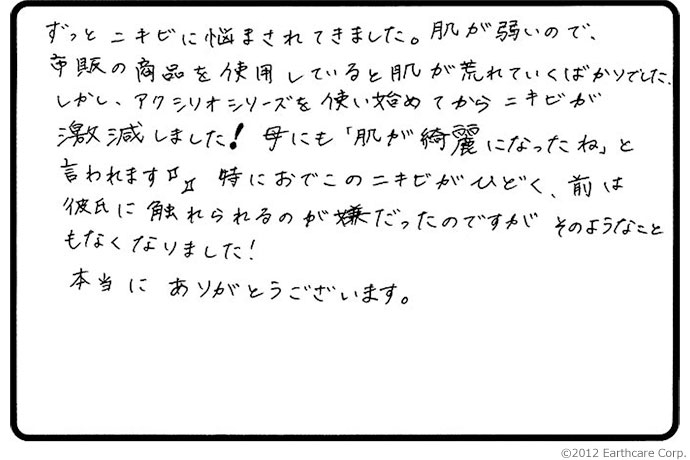 ずっとニキビに悩まされてきました。肌が弱いので、
市販の商品を使用していると肌が荒れていくばかりでした。
しかし、アクシリオシリーズを使い始めてからニキビが
激減しました！母にも「肌が綺麗になったね」と
言われます♫♫ 特におでこのニキビがひどく、前は
彼氏に触れられるのが嫌だったのですがそのようなこと
もなくなりました！
本当にありがとうございます。
©2012 Earthcare Corp.